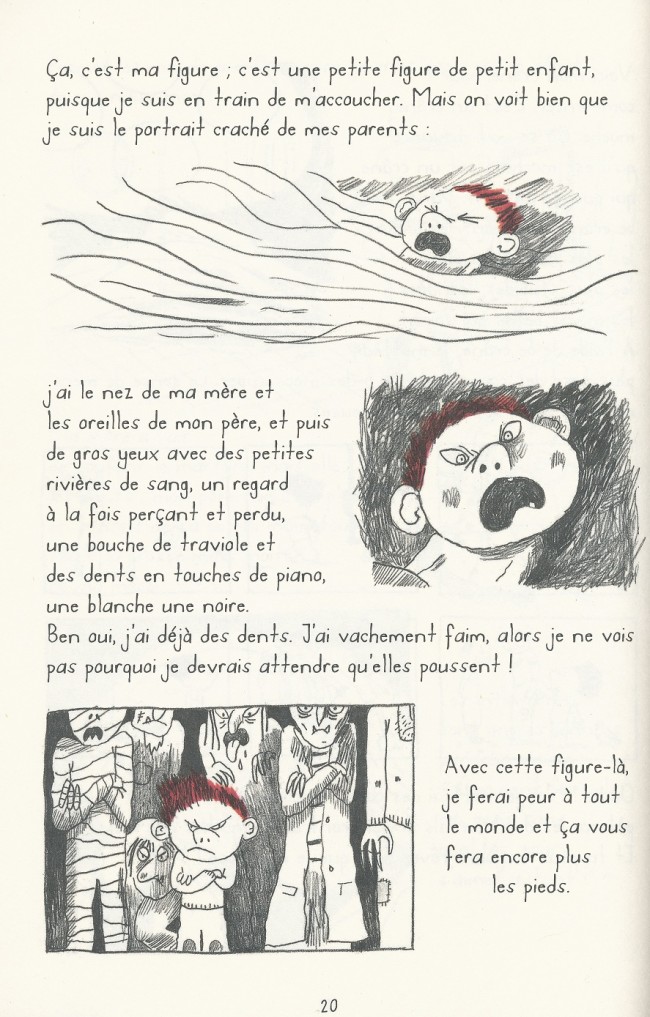 Ça, c'est ma figure ; c'est une petite figure de petit enfant,
puisque je suis en train de m'accoucher. Mais on voit bien que
je suis le portrait craché de mes parents :
j'ai le nez de ma mère et
les oreilles de mon père, et puis
de gros yeux avec des petites
rivières de sang, un regard
à la fois perçant et perdu,
une bouche de traviole et
des dents en touches de piano,
une blanche une noire.
Ben oui, j'ai déjà des dents. J'ai vachement faim, alors je ne vois
pas pourquoi je devrais attendre qu'elles poussent !
Avec cette figure-là,
je ferai peur à tout
le monde et ça vous
fera encore plus
les pieds.
20